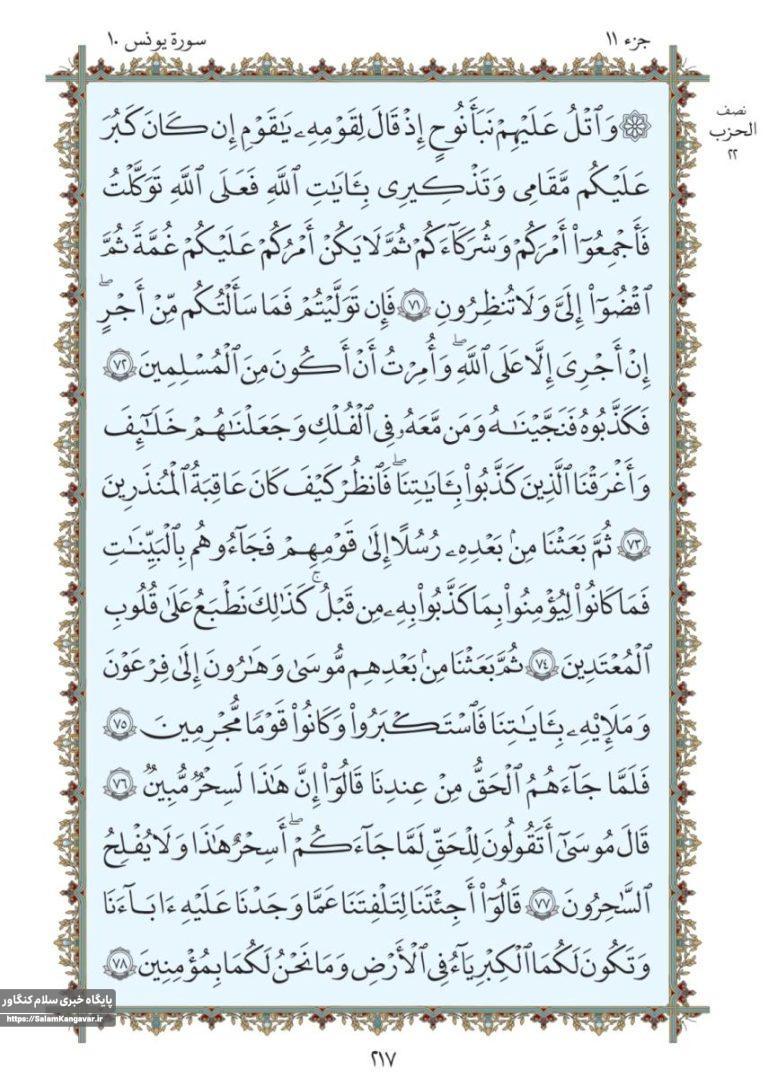 جزء ١١
سورة يونس ١٠
نصف
الحزب
٢٢
۞ وَٱتۡلُ عَلَيۡهِمۡ نَبَأَ نُوحٍ إِذۡ قَالَ لِقَوۡمِهِۦ يَٰقَوۡمِ إِن كَانَ كَبُرَ
عَلَيۡكُم مَّقَامِى وَتَذۡكِيرِى بِـَٔايَٰتِ ٱللَّهِ فَعَلَى ٱللَّهِ تَوَكَّلۡتُ
فَأَجۡمِعُوٓاْ أَمۡرَكُمۡ وَشُرَكَآءَكُمۡ ثُمَّ لَا يَكُنۡ أَمۡرُكُمۡ عَلَيۡكُمۡ غُمَّةٗ ثُمَّ
ٱقۡضُوٓاْ إِلَىَّ وَلَا تُنظِرُونِ ٧١ فَإِن تَوَلَّيۡتُمۡ فَمَا سَأَلۡتُكُم مِّنۡ أَجۡرٍۖ
إِنۡ أَجۡرِىَ إِلَّا عَلَى ٱللَّهِۖ وَأُمِرۡتُ أَنۡ أَكُونَ مِنَ ٱلۡمُسۡلِمِينَ ٧٢
فَكَذَّبُوهُ فَنَجَّيۡنَٰهُ وَمَن مَّعَهُۥ فِى ٱلۡفُلۡكِ وَجَعَلۡنَٰهُمۡ خَلَٰٓئِفَ
وَأَغۡرَقۡنَا ٱلَّذِينَ كَذَّبُواْ بِـَٔايَٰتِنَاۖ فَٱنظُرۡ كَيۡفَ كَانَ عَٰقِبَةُ ٱلۡمُنذَرِينَ
٧٣ ثُمَّ بَعَثۡنَا مِنۢ بَعۡدِهِۦ رُسُلًا إِلَىٰ قَوۡمِهِمۡ فَجَآءُوهُم بِٱلۡبَيِّنَٰتِ
فَمَا كَانُواْ لِيُؤۡمِنُواْ بِمَا كَذَّبُواْ بِهِۦ مِن قَبۡلُۚ كَذَٰلِكَ نَطۡبَعُ عَلَىٰ قُلُوبِ
ٱلۡمُعۡتَدِينَ ٧٤ ثُمَّ بَعَثۡنَا مِنۢ بَعۡدِهِم مُّوسَىٰ وَهَٰرُونَ إِلَىٰ فِرۡعَوۡنَ
وَمَلَإِيْهِۦ بِـَٔايَٰتِنَا فَٱسۡتَكۡبَرُواْ وَكَانُواْ قَوۡمٗا مُّجۡرِمِينَ ٧٥
فَلَمَّا جَآءَهُمُ ٱلۡحَقُّ مِنۡ عِندِنَا قَالُوٓاْ إِنَّ هَٰذَا لَسِحۡرٞ مُّبِينٞ ٧٦
قَالَ مُوسَىٰٓ أَتَقُولُونَ لِلۡحَقِّ لَمَّا جَآءَكُمۡۖ أَسِحۡرٌ هَٰذَا وَلَا يُفۡلِحُ
ٱلسَّٰحِرُونَ ٧٧ قَالُوٓاْ أَجِئۡتَنَا لِتَلۡفِتَنَا عَمَّا وَجَدۡنَا عَلَيۡهِ ءَابَآءَنَا
وَتَكُونَ لَكُمَا ٱلۡكِبۡرِيَآءُ فِى ٱلۡأَرۡضِ وَمَا نَحۡنُ لَكُمَا بِمُؤۡمِنِينَ ٧٨
پایگاه خبری سلام کنگاور
https://SalamKangavar.ir
٢١٧